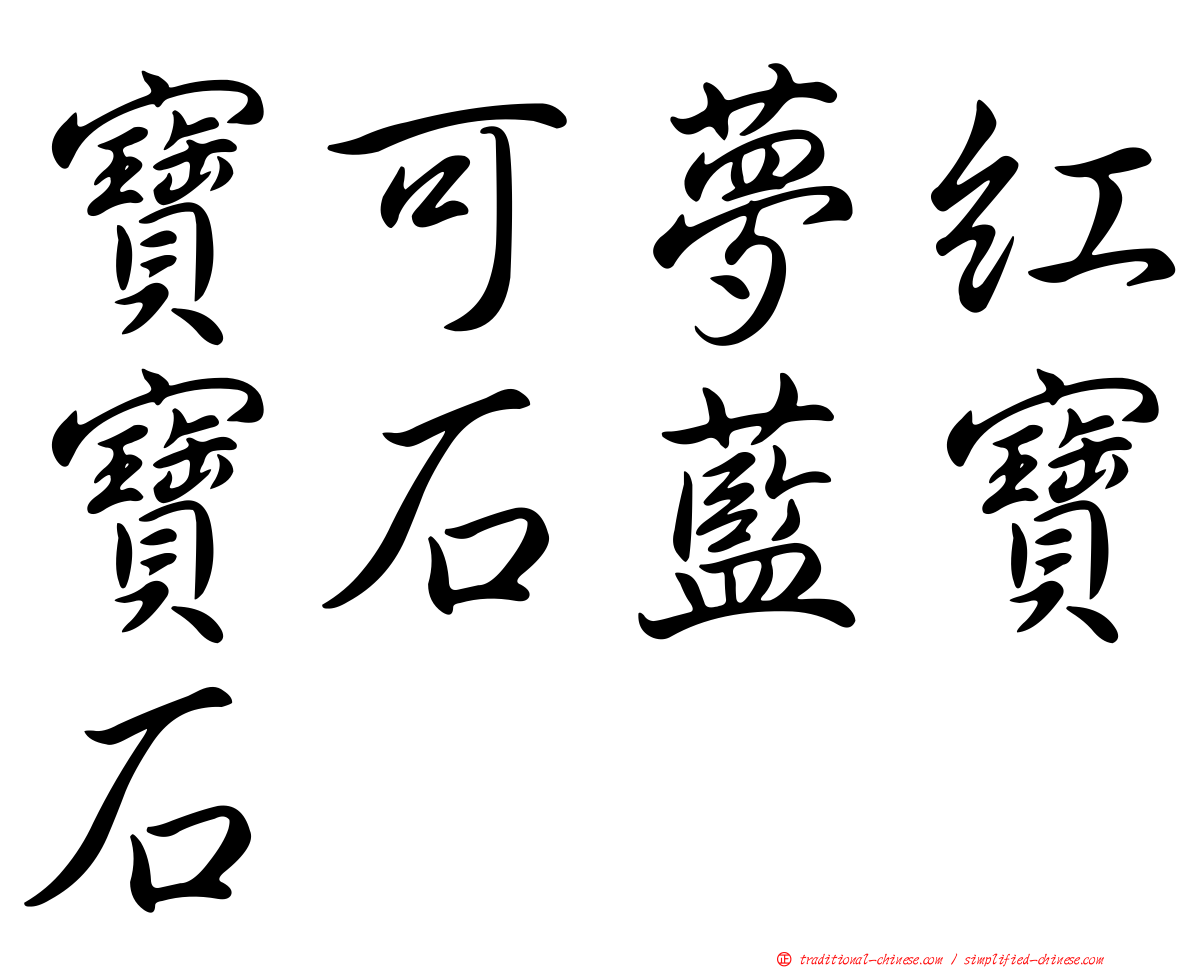 寶可夢紅
寶石藍寶
石
正 traditional-chinese.com / simplified-chinese.com